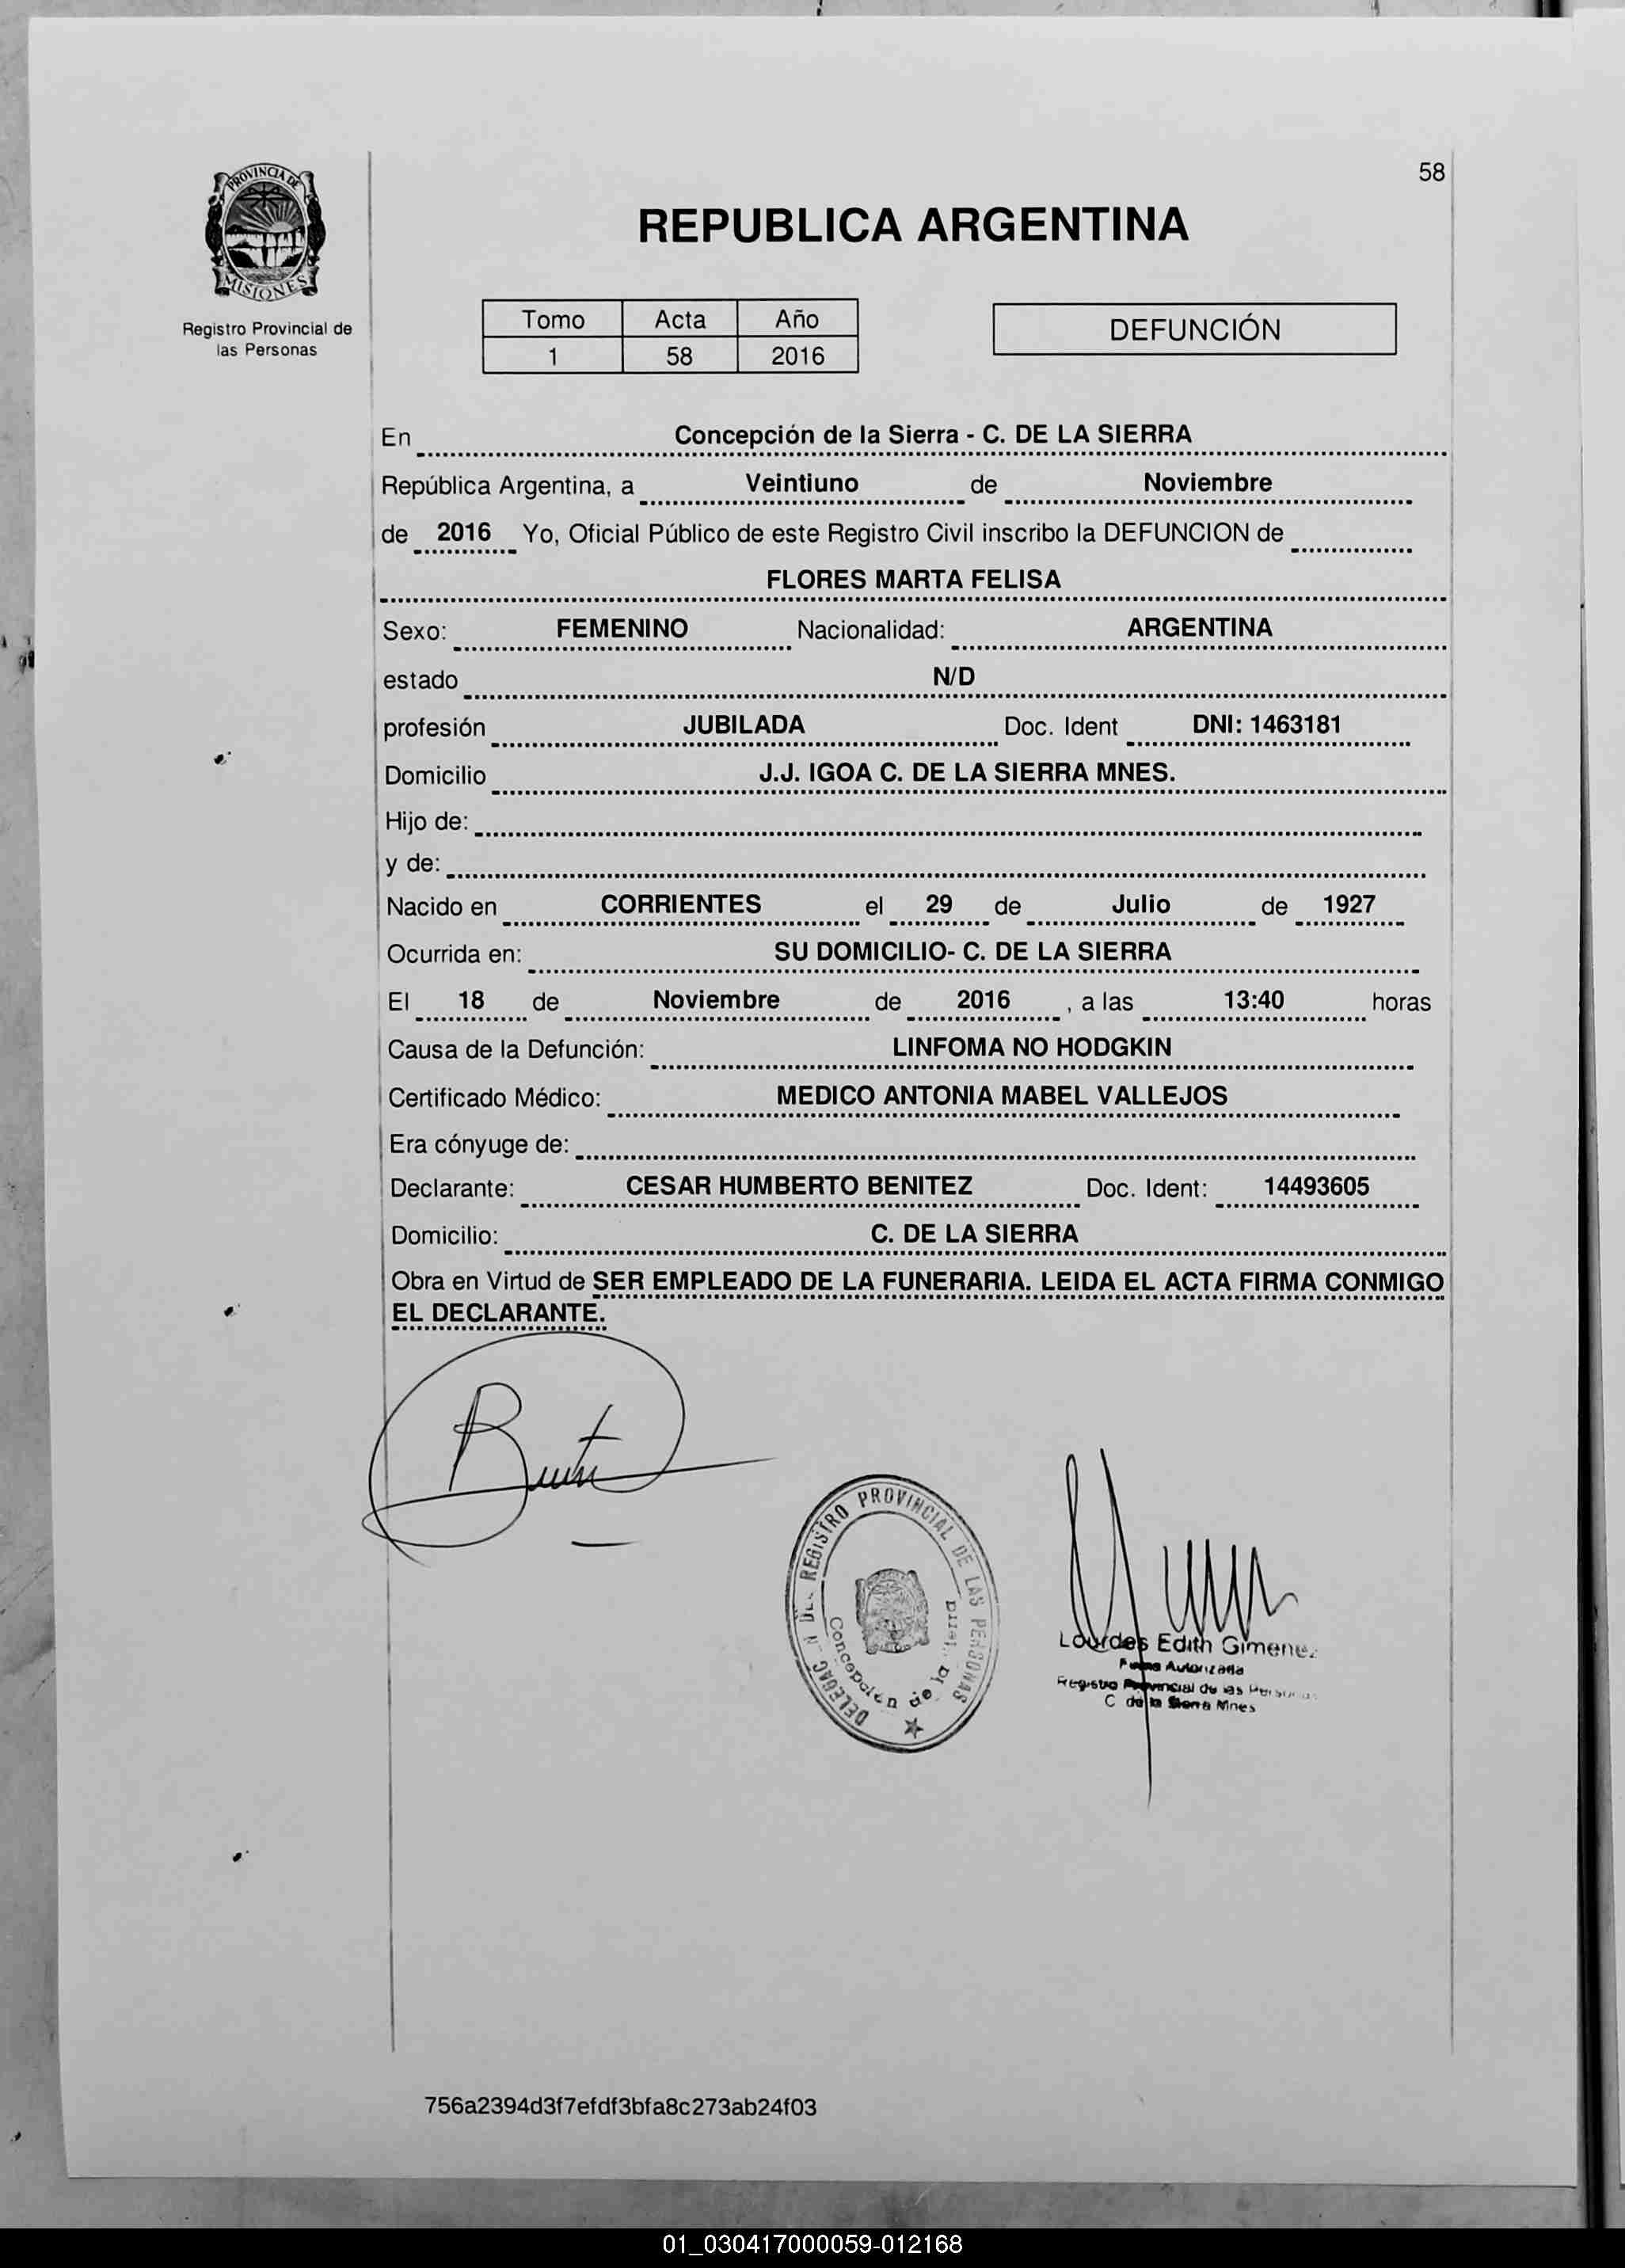 58
PROVINCIA DE
MISIONES
Registro Provincial de
las Personas
REPUBLICA ARGENTINA
Tomo Acta Año
1 58 2016
DEFUNCIÓN
En Concepción de la Sierra - C. DE LA SIERRA
República Argentina, a Veintiuno de Noviembre
de 2016 Yo, Oficial Público de este Registro Civil inscribo la DEFUNCION de
FLORES MARTA FELISA
Sexo: FEMENINO Nacionalidad: ARGENTINA
estado N/D
profesión JUBILADA Doc. Ident DNI: 1463181
Domicilio J.J. IGOA C. DE LA SIERRA MNES.
Hijo de:
y de:
Nacido en CORRIENTES el 29 de Julio de 1927
Ocurrida en: SU DOMICILIO- C. DE LA SIERRA
El 18 de Noviembre de 2016 , a las 13:40 horas
Causa de la Defunción: LINFOMA NO HODGKIN
Certificado Médico: MEDICO ANTONIA MABEL VALLEJOS
Era cónyuge de:
Declarante: CESAR HUMBERTO BENITEZ Doc. Ident: 14493605
Domicilio: C. DE LA SIERRA
Obra en Virtud de SER EMPLEADO DE LA FUNERARIA. LEIDA EL ACTA FIRMA CONMIGO
EL DECLARANTE.
REGISTRO PROVINCIAL DE LAS PERSONAS
Concepción de la
Lourdes Edith Gimenez
Firma Autorizada
Registro Provincial de las Personas
C de la Sierra Mnes
756a2394d3f7efdf3bfa8c273ab24f03
01_030417000059-012168